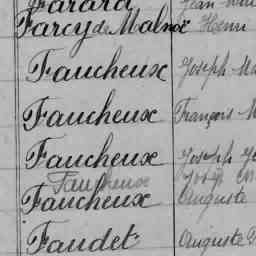 Farard Jean
Farcy de Malnoë Henri
Faucheux Joseph Ma
Faucheux François M
Faucheux Joseph
Faucheux Joseph
Faucheux Auguste
Faudet Auguste